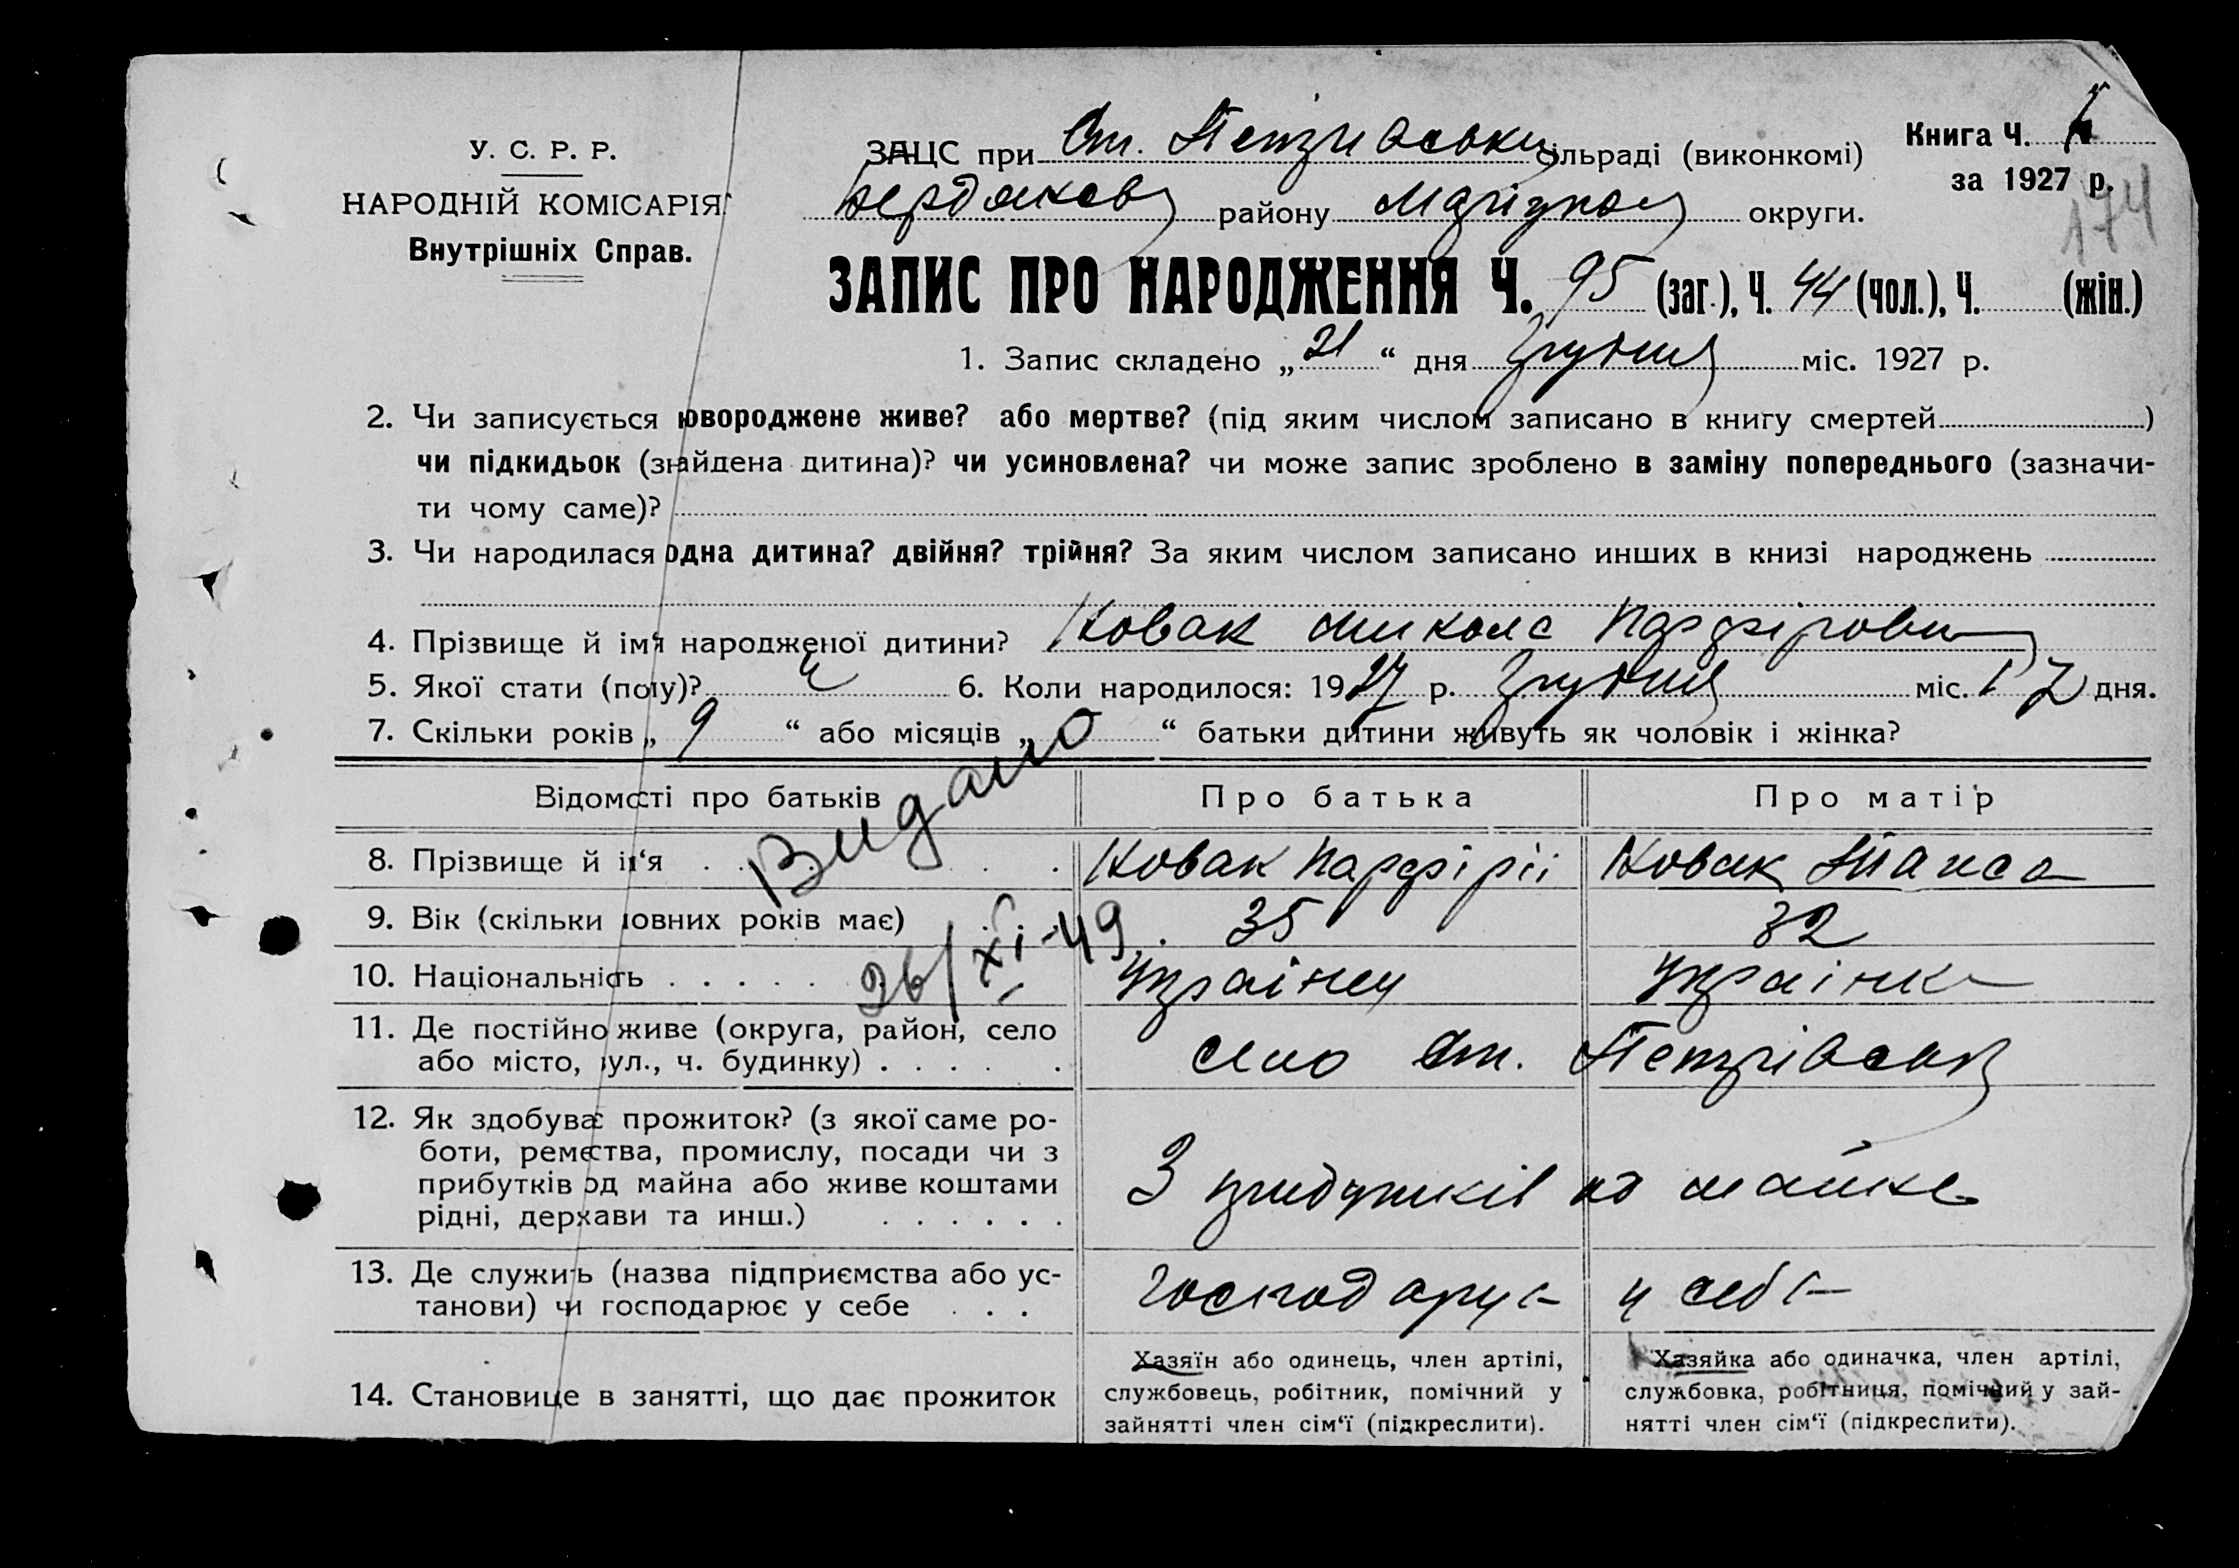 У. С. Р. Р.
НАРОДНІЙ КОМІСАРІЯТ
Внутрішніх Справ.
ЗАЦС при Ст. Петрівськи сільраді (виконкомі)
Бердянськ району Маріупол округи.
Книга Ч.
за 1927 р.
174
ЗАПИС ПРО НАРОДЖЕННЯ Ч. 95 (заг.), Ч. 44 (чол.), Ч. (жін.)
1. Запис складено „21“ дня Грудня міс. 1927 р.
2. Чи записується новороджене живе? або мертве? (під яким числом записано в книгу смертей )
чи підкидьок (знайдена дитина)? чи усиновлена? чи може запис зроблено в заміну попереднього (зазначи-
ти чому саме)?
3. Чи народилася одна дитина? двійня? трійня? За яким числом записано инших в книзі народжень
4. Прізвище й ім‘я народженої дитини? Ковак Микола Парфірович
5. Якої стати (полу)? ч 6. Коли народилося: 1927 р. Грудня міс. 17 дня.
7. Скільки років „9“ або місяців „ “ батьки дитини живуть як чоловік і жінка?
Видано
26/XI-49
Відомості про батьків Про батька Про матір
8. Прізвище й ім‘я . . . . . Ковак Парфірій Ковак Таиса
9. Вік (скільки повних років має) . . 35 32
10. Національність . . . . . Українец Українка
11. Де постійно живе (округа, район, село
або місто, вул., ч. будинку) . . . . . село Ст. Петрівськ
12. Як здобуває прожиток? (з якої саме ро-
боти, ремества, промислу, посади чи з
прибутків од майна або живе коштами
рідні, держави та инш.) . . . . . .
З прибутків од майна
13. Де служить (назва підприємства або ус-
танови) чи господарює у себе . . . господарує у себе
14. Становище в занятті, що дає прожиток
Хазяїн або одинець, член артілі,
службовець, робітник, помічний у
зайнятті член сім‘ї (підкреслити).
Хазяйка або одиначка, член артілі,
службовка, робітниця, помічний у зай-
нятті член сім‘ї (підкреслити).